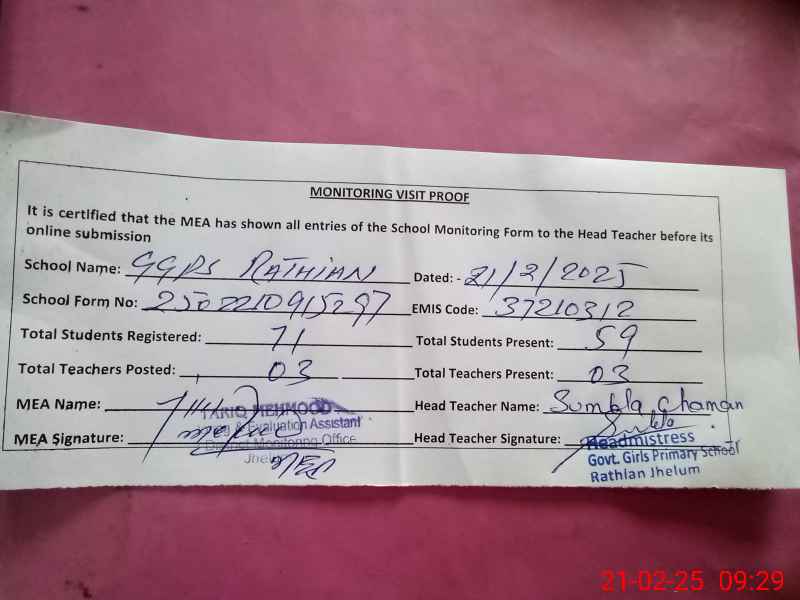 MONITORING VISIT PROOF
It is certified that the MEA has shown all entries of the School Monitoring Form to the Head Teacher before its
online submission
School Name: GGPS RATHIAN Dated: - 21/2/2025
School Form No: EMIS Code: 37210312
Total Students Registered: 71 Total Students Present: 59
Total Teachers Posted: 03 Total Teachers Present: 03
MEA Name: Head Teacher Name: Sumbla Chaman
TARIQ MEHMOOD
& Evaluation Assistant
MEA Signature: Head Teacher Signature:
District Monitoring Office
Jhelum
Headmistress
Govt. Girls Primary School
Rathian Jhelum
21-02-25 09:29